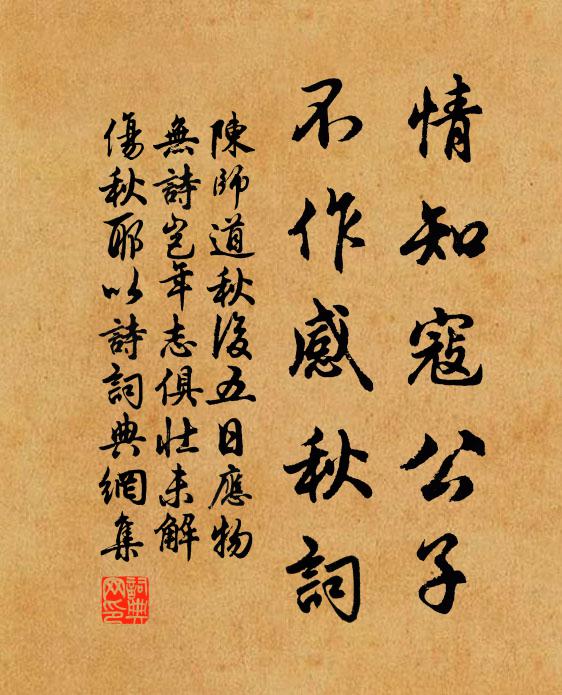 情知寇公子
不作感秋詞
陳師道秋後五日應物
無詩豈年志俱壯未解
傷秋耶以詩詞典網集
詞典網印